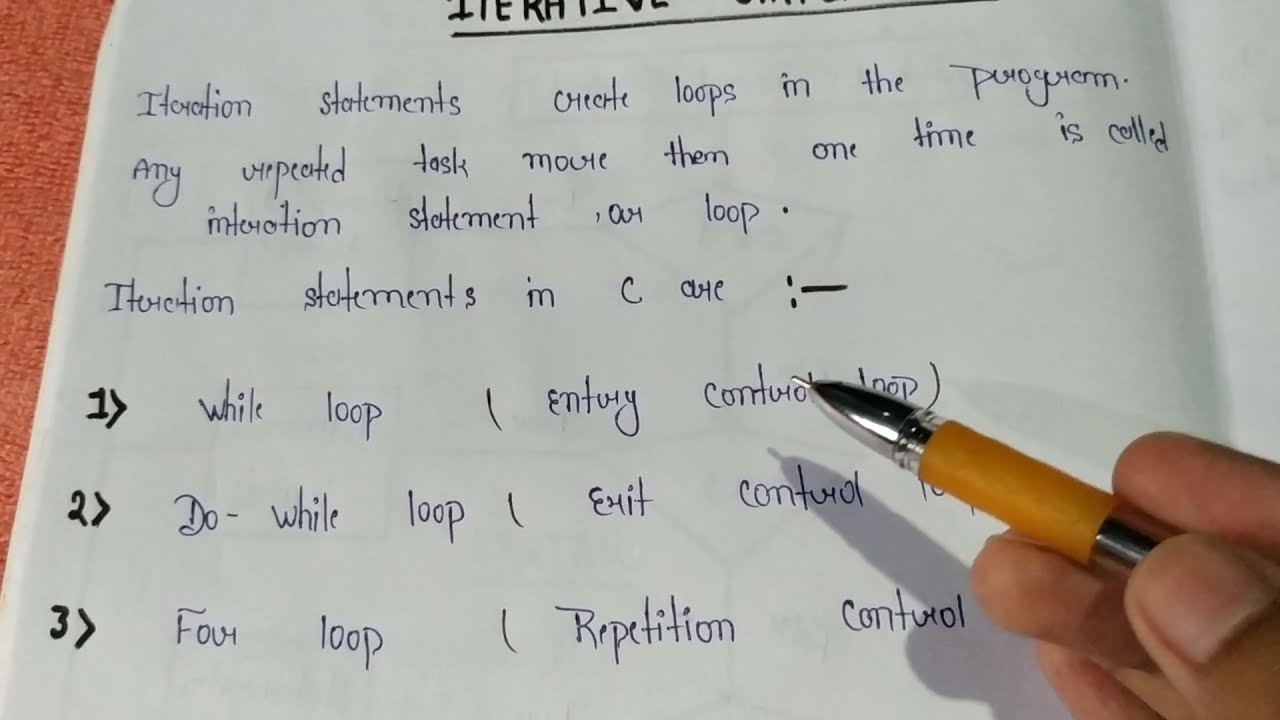 ITERATIVE
Iteration statements create loops in the program.
Any repeated task more them one time is called
interation statement , or loop .
Iteration statements in C are :-
1> while loop ( Entry control loop)
2> Do- while loop ( Exit control
3> For loop ( Repetition control